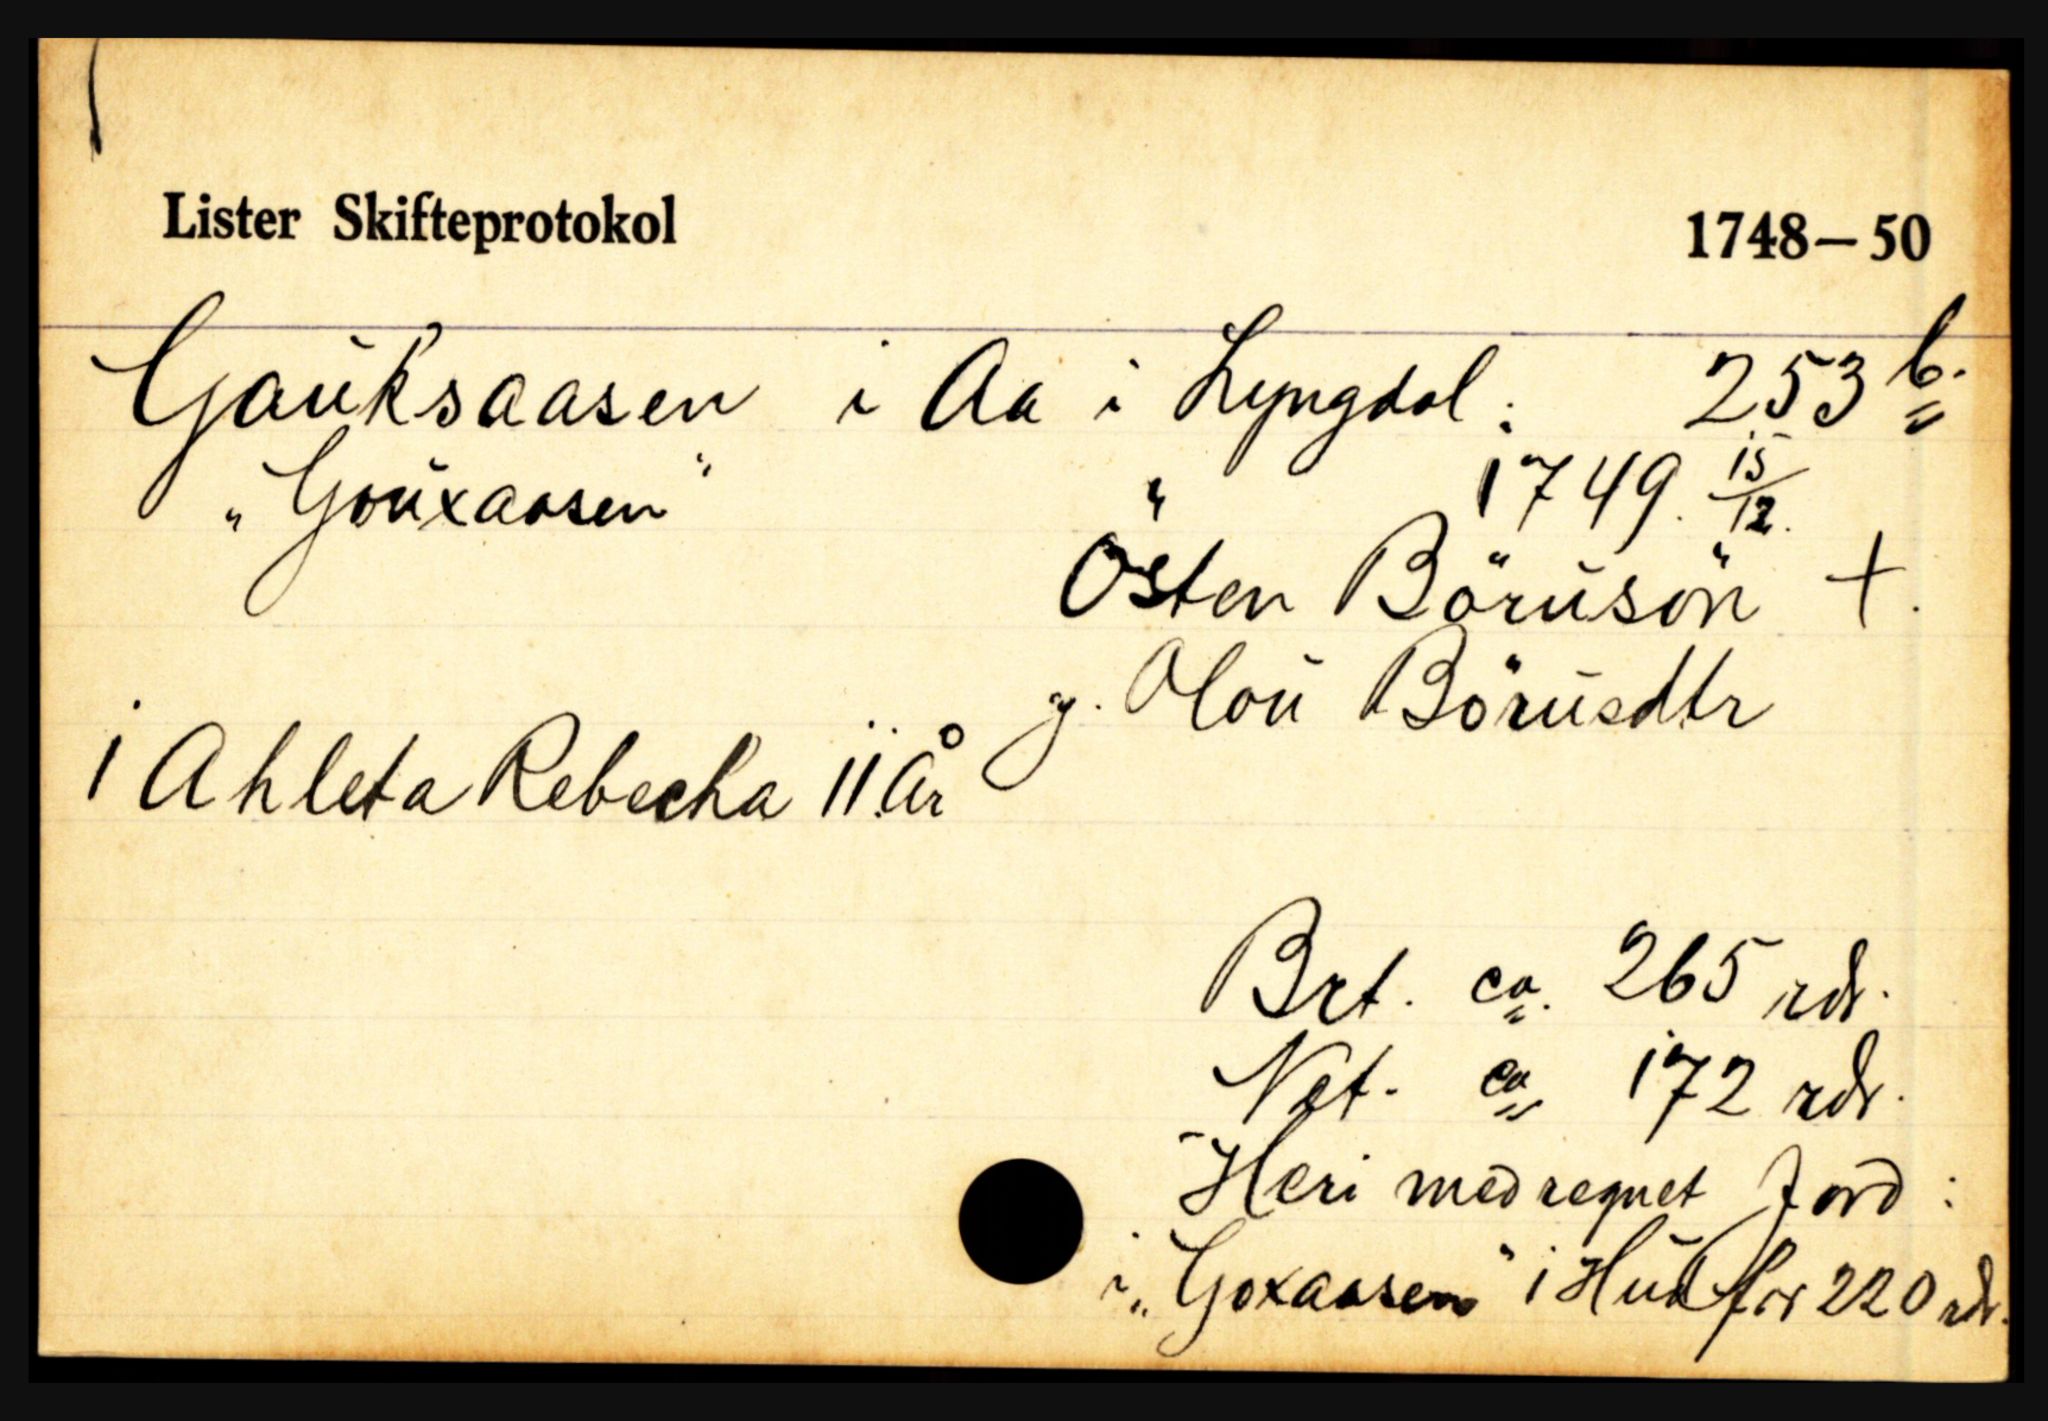 Lister Skifteprotokol 1748–50
Gauksaasen i Aa i Lyngdal. 253 b.
"Gouxaasen" 1749. 15/12.
Østen Børusøn +.
g. Alou Børusdtr
1 Ahleta Rebecka 11 År
Brt. ca. 265 rdr.
Net. ca 172 rdr.
Heri medregnet Jord:
i "Goxaasen" 1 Hud for 220 rdr.